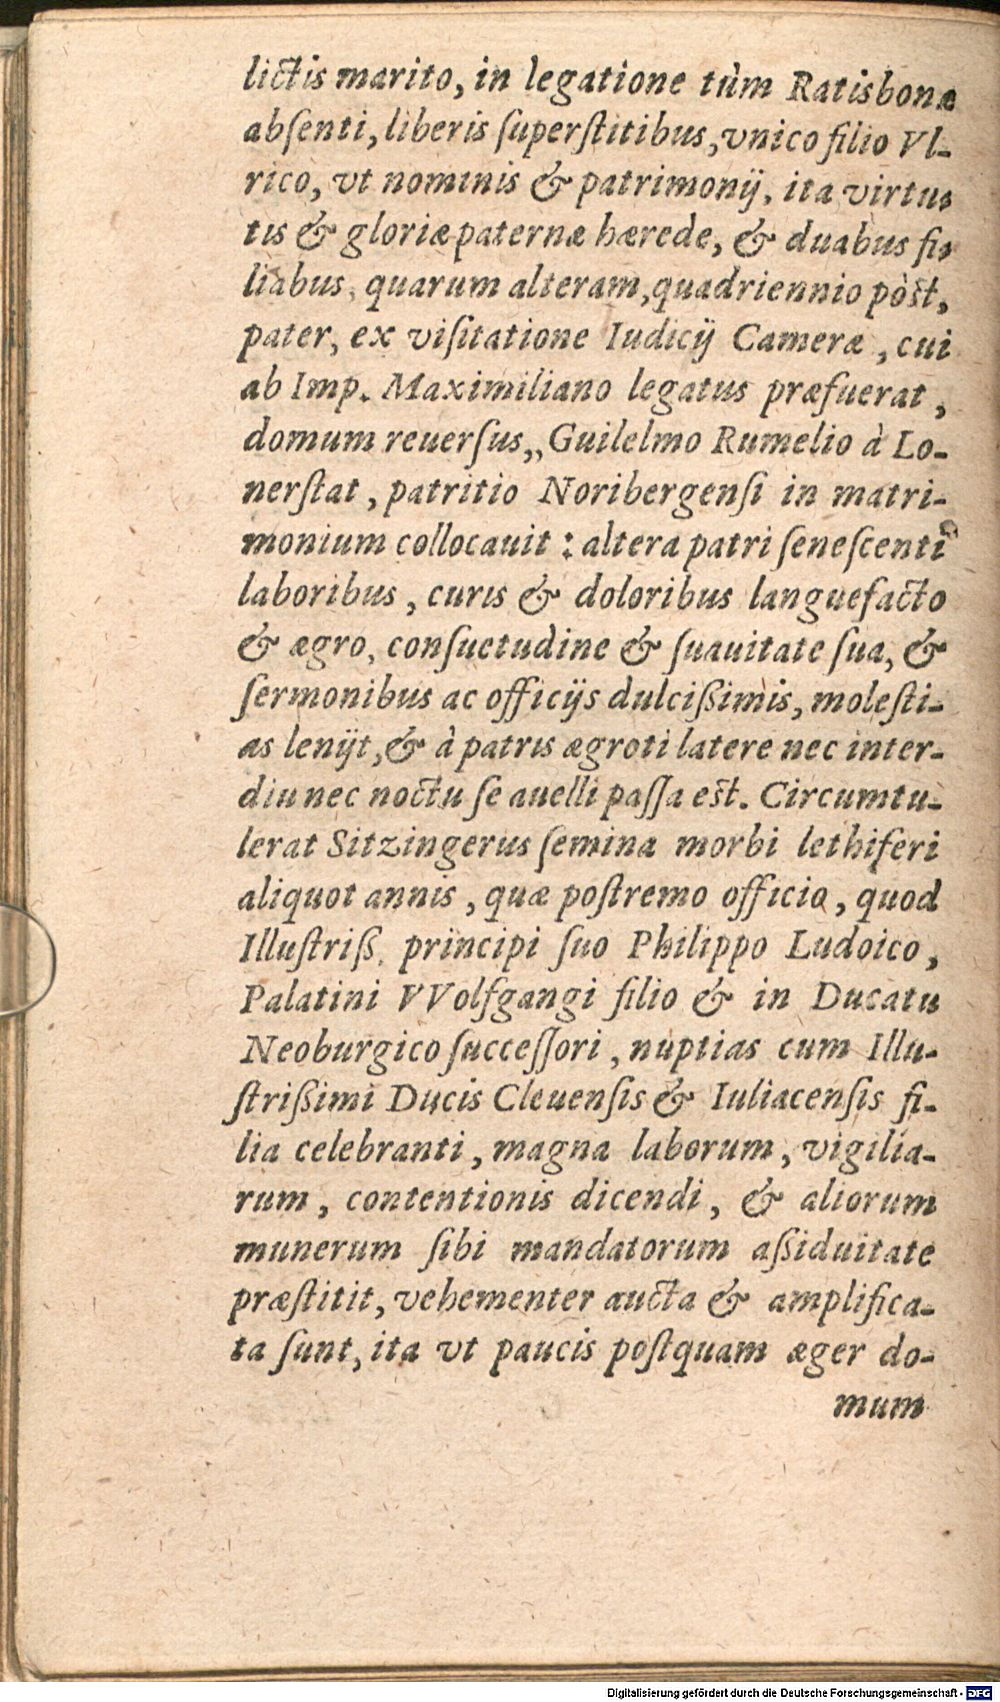 lictis marito, in legatione tùm Ratisbonæ
absenti, liberis superstitibus, vnico filio Vl-
rico, vt nominis & patrimonij, ita virtu-
tis & gloriæ paternæ hærede, & duabus fi-
liabus, quarum alteram, quadriennio pòst,
pater, ex visitatione Iudicij Cameræ, cui
ab Imp. Maximiliano legatus præfuerat,
domum reuersus,, Guilelmo Rumelio à Lo-
nerstat, patritio Noribergensi in matri-
monium collocauit : altera patri senescenti
laboribus, curis & doloribus languefacto
& ægro, consuetudine & suauitate sua, &
sermonibus ac officijs dulcißimis, molesti-
as lenijt, & à patris ægroti latere nec inter-
diu nec noctu se auelli passa est. Circumtu-
lerat Sitzingerus semina morbi lethiferi
aliquot annis, quæ postremo officio, quod
Illustriß. principi suo Philippo Ludoico,
Palatini VVolfgangi filio & in Ducatu
Neoburgico successori, nuptias cum Illu-
strißimi Ducis Cleuensis & Iuliacensis fi-
lia celebranti, magna laborum, vigilia-
rum, contentionis dicendi, & aliorum
munerum sibi mandatorum aßiduitate
præstitit, vehementer aucta & amplifica-
ta sunt, ita vt paucis postquam æger do-
mum
Digitalisierung gefördert durch die Deutsche Forschungsgemeinschaft - DFG